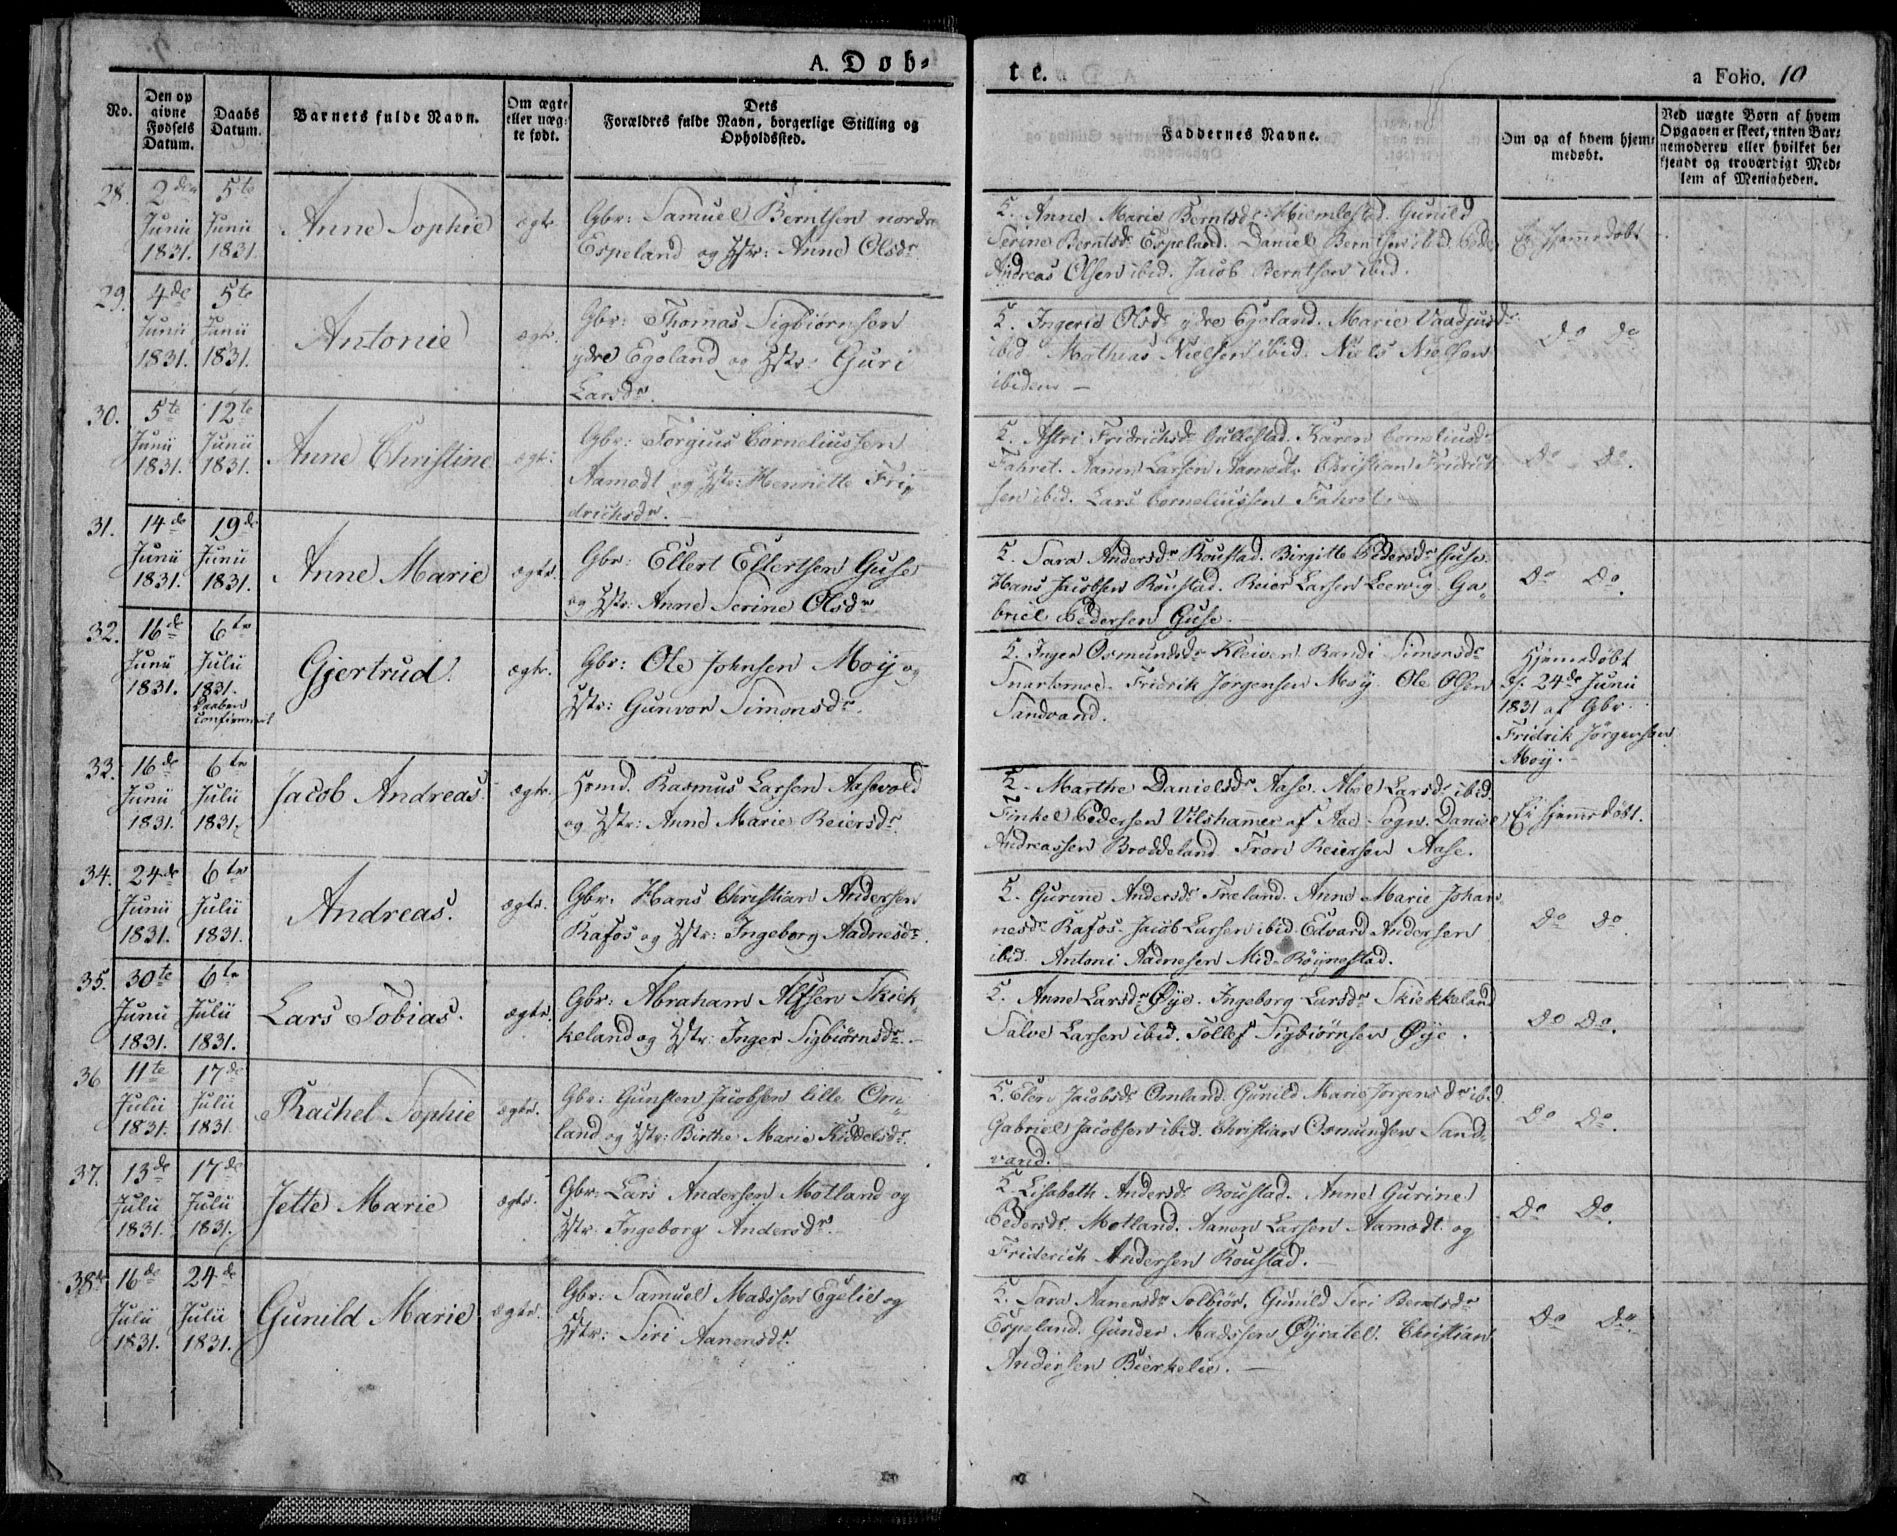 A. Døb-
te.
a Folio. 10
No.
Den op
givne
Fødsels
Datum.
Daabs
Datum.
Barnets fulde Navn.
Om ægte
eller uæg-
te født.
Dets
Forældres fulde Navn, borgerlige Stilling og
Opholdssted.
Faddernes Navne.
Om og af hvem hjem-
medøbt.
Ved uægte Børn af hvem
Opgaven er skeet, enten Bar-
nemoderen eller hvilket be-
kjendt og troværdigt Med-
lem af Menigheden.
28. 2den Junii 1831. 5te Junii 1831. Anne Sophie ægte
Gbr: Samuel Berntsen nordre
Espeland og Hstr: Anne Olsdr.
F. Anne Marie Berntsdr Hiemlestad. Gunild
Serine Berntsdr Espeland. Daniel Berntsen ibid.
Andreas Olsen ibid. Jacob Berntsen ibid.
Ei hjemmedøbt
29. 4de Junii 1831. 5te Junii 1831. Antonie ægte.
Gbr: Thomas Sigbiørnsen
ydre Egeland og Hstr: Guri
Larsdr.
F. Ingerid Olsdr ydre Egeland. Marie
ibid Mathias Nielsen ibid. Niels Nielsen
ibidem —
Do Do
30. 5te Junii 1831. 12te Junii 1831. Anne Christine ægte
Gbr: Torgius Corneliussen
Aamodt og Hstr: Henriette Fri-
drichsdr.
F. Astri Fridrichsdr Gullestad. Karen Corneliusdr
Fahret. Aanen Larsen Aamodt. Christian Fridrich-
sen ibid. Lars Corneliussen Fahret.
Do Do.
31. 14de Junii 1831. 19de Junii 1831. Anne Marie ægte.
Gbr: Ellert Ellertsen Guse
og Hstr: Anne Serine Olsdr.
F. Sara Andersdr Roustad. Birgitte Pedersdr Guse.
Hans Jacobsen Roustad. Reier Larsen Leervig. Ga-
briel Pedersen Guse.
Do Do.
32. 16de Junii 1831. 6te Julii 1831. Daaben Confirmeret Gjertrud. ægte.
Gbr: Ole Johnsen Moÿ og
Hstr: Gunvor Simonsdr.
F. Inger Osmundsdr Kleiven. Randi Simonsdr
Snartemoe. Fridrik Jørgensen Moÿ. Ole Olsen
Sandvand.
Hjemedøbt
d. 24de Junii
1831 af Gbr.
Fridrik Jørgensen
Moÿ.
33. 16de Junii 1831. 6te Julii 1831. Jacob Andreas. ægte.
Hsmd. Rasmus Larsen Aasevold
og Hstr: Anne Marie Reiersdr.
F. Marthe Danielsdr Aase. Abel Larsdr ibid.
Tinkel Pedersen Vilshammer af Aae Sogn. Daniel
Andreassen Broddeland. Tron Reiersen Aase.
Ei hjemmedøbt.
34. 24de Junii 1831. 6te Julii 1831. Andreas. ægte.
Gbr. Hans Christian Andersen
Rafos og Hstr: Ingeborg Aadnesdr.
F. Gurine Andersdr Træland. Anne Marie Johan-
nesdr Rafos. Jacob Larsen ibid. Edvard Andersen
ibid. Antoni Aadnesen Mid-Röÿnestad.
Do Do.
35. 30te Junii 1831. 6te Julii 1831. Lars Tobias. ægte.
Gbr: Abraham Alfsen Skiek-
keland og Hstr: Inger Sigbiørnsdr.
F. Anne Larsdr Øye. Ingeborg Larsdr Skiekkeland
Salve Larsen ibid. Tollef Sigbiørnsen Øÿe.
Do Do.
36 11te Julii 1831. 17de Julii 1831 Rachel Sophie ægte.
Gbr: Gunsten Jacobsen lille Om-
land og Hstr: Birthe Marie Kiddelsdr.
F. Elen Jacobsdr Omland. Gunild Marie Jørgensdr ibid.
Gabriel Jacobsen ibid. Christian Osmundsen Sand-
vand.
Do Do.
37. 13de Julii 1831. 17de Julii 1831. Jette Marie ægte.
Gbr: Lars Andersen Motland og
Hstr. Ingeborg Andersdr.
F. Lisabeth Andersdr Roustad. Anne Gurine
Pedersdr Motland. Aanen Larsen Aamodt og
Friderich Andersen Roustad.
Do Do.
38de 16de Julii 1831. 24de Julii 1831. Gunild Marie ægte.
Gbr: Samuel Madssen Egelie og
Hstr: Siri Aanensdr.
F. Sara Aanensdr Solbiør. Gunild Siri Berntsdr
Espeland. Gunder Madssen Christian
Andersen Bierkelie. —
Do Do.